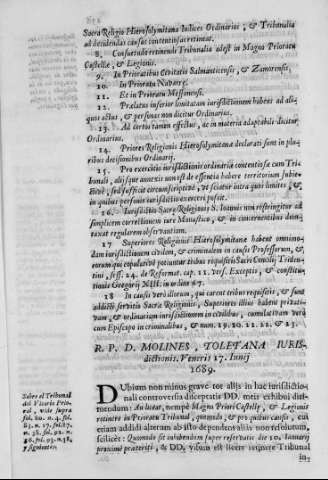 Sacra Religio Hierosolymitana Iudices Ordinarios, & Tribunalia
ad decidendas causas contentiosas retineat.
8. Consuetudo retinendi Tribunalia adest in Magno Prioratu
Castellæ, & Legionis.
9. In Prioratibus Civitatis Salmanticensis, & Zamorensis.
10. In Prioratu Navarræ.
11. Et in Prioratu Messanensi.
12. Prælatus inferior limitatam iurisdictionem habens ad ali-
quos actus, & personas non dicitur Ordinarius.
13. Ad certos tamen effectus, ac in materia adaptabili dicitur
Ordinarius.
14. Priores Religionis Hierosolymitanæ declarati sunt in plu-
ribus decisionibus Ordinarij.
15. Pro exercitio iurisdictionis ordinariæ contentiosæ cum Tri-
bunali, alijsque annexis non est de essentia habere territorium subie-
ctivè, sed sufficit circumscriptivè, ut sciatur intra quos limites, &
in quibus personis iurisdictio exerceri possit.
16. Iurisdictio Sacræ Religionis S. Ioannis non restringitur ad
simplicem correctionem iure Monastico, & in concernentibus dum-
taxat regularem observantiam.
17 Superiores Religionis Hierosolymitanæ habent omnimo-
dam iurisdictionem civilem, & criminalem in causis Professorum, &
eorum qui copulativè potiuntur tribus requisitis Sacri Concilij Triden-
tini, sess. 24. de Reformat. cap. 11. vers. Exceptis, & constitu-
tionis Gregorij XIII. in ordine 47.
18 In causis verò illorum, qui carent tribus requisitis, & sunt
addicti servitio Sacræ Religionis, Superiores illius habent priva-
tam, & ordinariam iurisdictionem in civilibus, cumulativam verò
cum Episcopo in criminalibus, & num. 19. 20. 21. 22. & 23.
R. P. D. MOLINES, TOLETANA IURIS-
dictionis. Veneris 17. Iunij
1689.
Sobre el Tribunal
del Vicario Prio-
ral, vide supra
y siguientes
DUbium non minus grave tot alijs in hac iurisdictio-
nali controversia disceptatis DD. meis exhibui dis-
putandum: An liceat, nempè Magno Priori Castellæ, & Legionis
retinere in Prioratu Tribunal, quomodo, & pro quibus causis, cui
etiam addidi alterum ab isto dependens aliàs non resolutum,
scilicèt: Quomodo sit inhibendum super reportatis die 10. Ianuarij
proximè præteriti, & DD. visum est licere retinere Tribunal
in